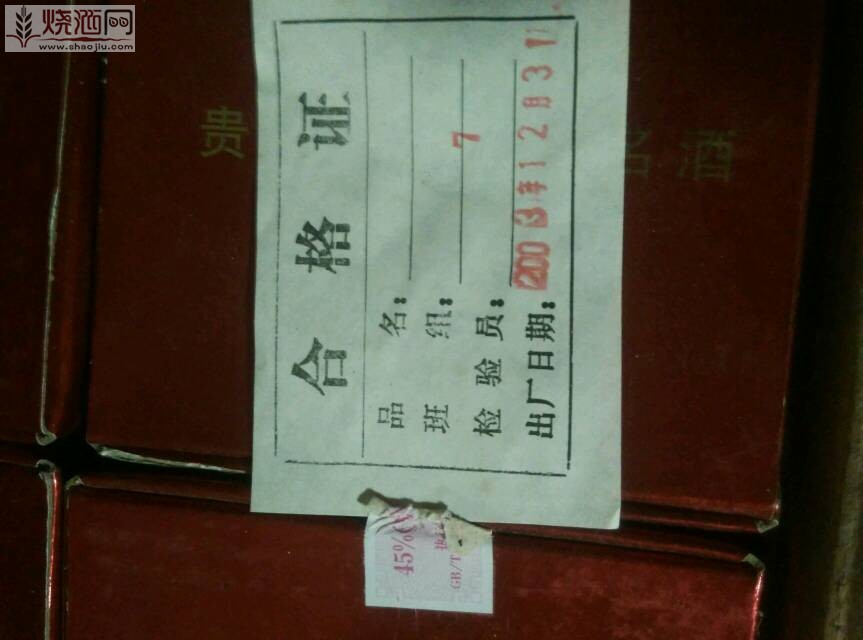 烧酒网
www.shaojiu.com
贵
名酒
合格证
品名:
班组:
检验员: 7
出厂日期: 2003年12月31
45%
GB/T